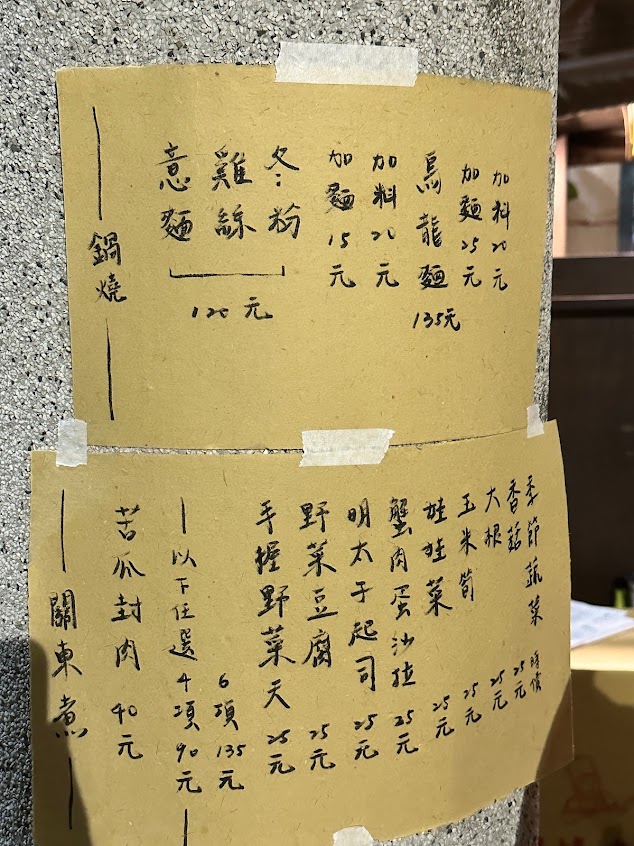 鍋燒
意麵
雞絲
冬粉
120元
加麵15元
加料20元
烏龍麵
135元
加麵25元
加料20元
關東煮
苦瓜封肉 40元
以下任選4項90元
6項135元
手握野菜天 25元
野菜豆腐 25元
明太子起司 25元
蟹肉蛋沙拉 25元
娃娃菜 25元
玉米筍 25元
大根 25元
香菇 25元
季節蔬菜 時價